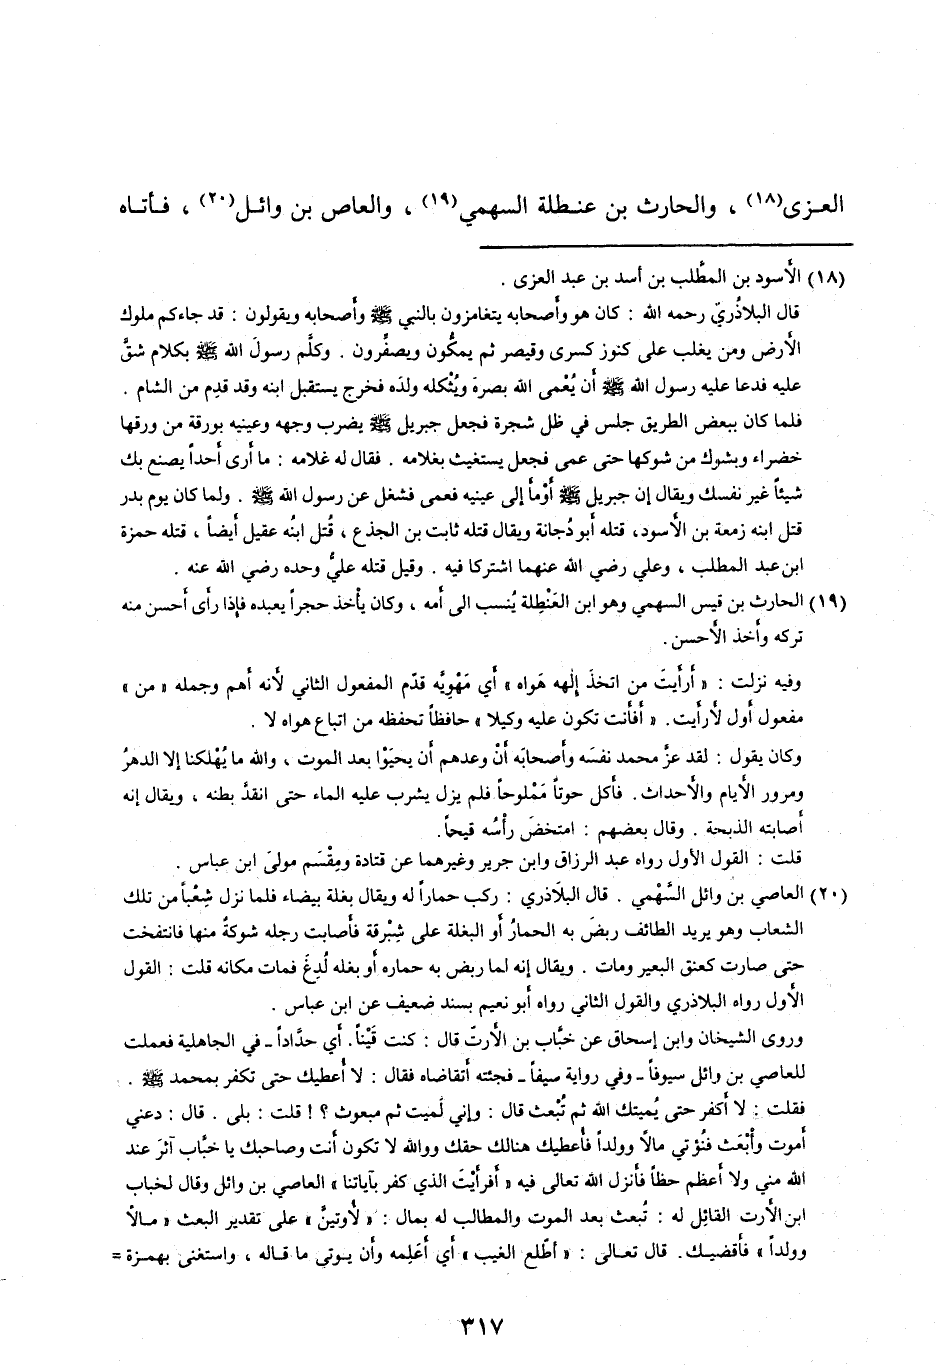 العـزى(١٨) ، والحارث بن عنـطلة السهمي(١٩) ، والعاص بن وائـل(٢٠) ، فـأتـاه
(١٨) الأسود بن المطَّلب بن أسد بن عبد العزى .
قال البلاذُريّ رحمه الله : كان هو وأصحابه يتغامزون بالنبي ﷺ وأصحابه ويقولون : قد جاءكم ملوك
الأرض ومن يغلب على كنوز كسرى وقيصر ثم يمكُّون ويصفِّرون . وكلَّم رسولَ الله ﷺ بكلام شقَّ
عليه فدعا عليه رسول الله ﷺ أن يُعْمى الله بصرة ويُثْكله ولدَه فخرج يستقبل ابنه وقد قدِم من الشام .
فلما كان ببعض الطريق جلس في ظل شجرة فجعل جبريل ﷺ يضرب وجهه وعينيه بورقة من ورقها
خضراء وبشوك من شوكها حتى عمى فجعل يستغيث بغلامه . فقال له غلامه : ما أرى أحداً يصنع بك
شيئاً غير نفسك ويقال إن جبريل ﷺ أوْمأ إلى عينيه فعمى فشغل عن رسول الله ﷺ . ولما كان يوم بدر
قتل ابنه زمعة بن الأسود، قتله أبو دُجانة ويقال قتله ثابت بن الجذع ، قُتل ابنُه عقيل أيضاً ، قتله حمزة
ابن عبد المطلب ، وعلي رضي الله عنهما اشتركا فيه . وقيل قتله عليُّ وحده رضي الله عنه .
(١٩) الحارث بن قيس السهمي وهو ابن العَنْطِلة يُنسب الى أمه ، وكان يأخذ حجراً يعبده فإذا رأى أحسن منه
تركه وأخذ الأحسن.
وفيه نزلت : « أرأيتَ من اتخذَ إلٰهه هَواه » أي مَهْوِيَّه قدّم المفعول الثاني لأنه أهم وجمله « من »
مفعول أول لأرأيت. « أفأنت تكون عليه وكيلا » حافظاً تحفظه من اتباع هواه لا .
وكان يقول : لقد عزَّ محمد نفسَه وأصحابَه أنْ وعدهم أن يحيَوْا بعد الموت ، والله ما يُهْلكنا إلا الدهرُ
ومرور الأيام والأحداث. فأكل حوتاً مَمْلوحاً فلم يزل يشرب عليه الماء حتى انقدَّ بطنه ، ويقال إنه
أصابته الذبحة . وقال بعضهم : امتخضَ رأْسُه قيحاً.
قلت : القول الأول رواه عبد الرزاق وابن جرير وغيرهما عن قتادة ومِقْسَم مولىَ ابن عباس .
(٢٠) العاصي بن وائل السَّهْمي . قال البلَاذري : ركب حماراً له ويقال بغلة بيضاء فلما نزل شِعْباً من تلك
الشعاب وهو يريد الطائف ربضَ به الحمارُ أو البغلة على شِبْرقة فأصابت رجله شوكةٌ منها فانتفخت
حتى صارت كعنق البعير ومات . ويقال إنه لما ربض به حماره أو بغله لُدِغَ فمات مكانه قلت : القول
الأول رواه البلاذري والقول الثاني رواه أبو نعيم بسند ضعيف عن ابن عباس .
وروى الشيخان وابن إسحاق عن خبَّاب بن الأرتّ قال : كنت قَيْناً. أي حدَّاداً ـ في الجاهلية فعملت
للعاصي بن وائل سيوفاً ـ وفي رواية سيفاً ـ فجئته أتقاضاه فقال : لا أعطيك حتى تكفر بمحمد ﷺ .
فقلت : لا أكفر حتى يُميتك الله ثم تُبْعث قال : وإني لَميت ثم مبعوث ؟! قلت : بلى . قال : دعني
أموت وأُبْعَث فنُؤتي مالاً وولداً فأعطيك هنالك حقك ووالله لا تكون أنت وصاحبك يا خبَّاب آثرَ عند
الله مني ولا أعظم حظاً فأنزل الله تعالى فيه « أفرأيْتَ الذي كفر بآياتنا » العاصي بن وائل وقال لخباب
ابن الأرت القائِل له : تُبعث بعد الموت والمطالب له بمال : « لأوتينَّ » على تقدير البعث « مـالاً
وولداً » فأقضيـك. قال تعـالى : « أطّلع الغيب » أي أعَلِمه وأن يـوتى ما قـاله ، واستغنى بهمـزة =
٣١٧